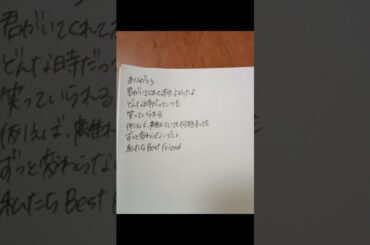 ありがとう
君がいてくれて本当よかったよ
どんな時だっていつも
笑っていられる
例えば、離れていても何年経っても
ずっと変わらないでしょ
私たち Best Friend